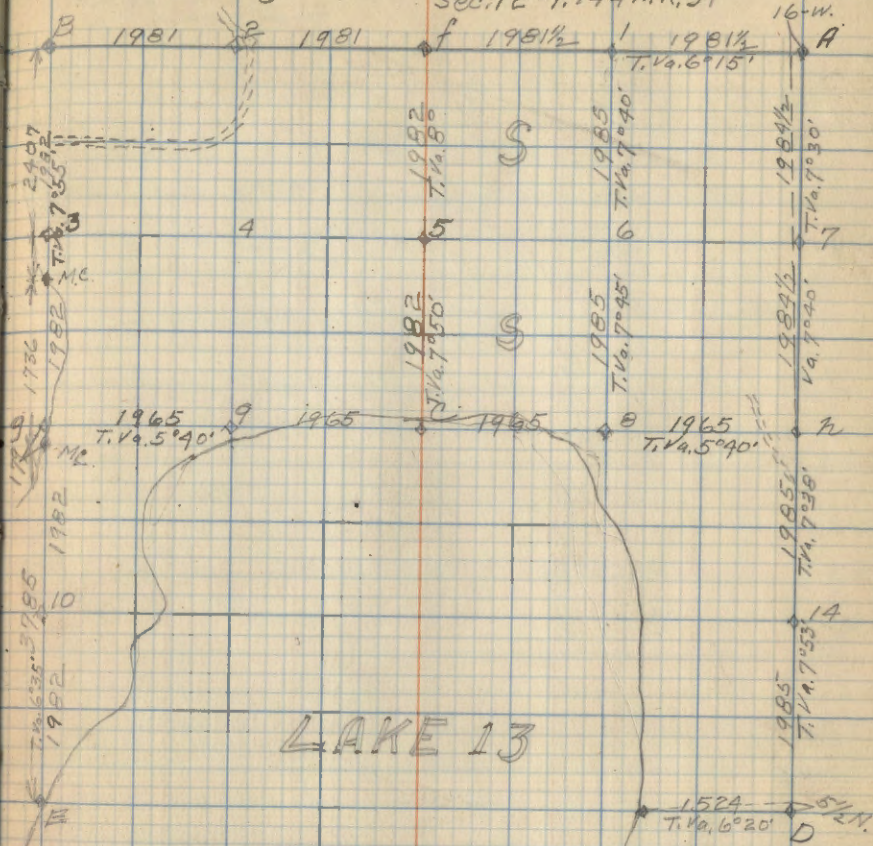 Sec. 12 T. 144 N. R. 31
16-W.
B 1981 2 1981 f 1981½ 1 1981½ A
T. Va. 6°15'
2407
1982
T. Va. 7°55'
1982
T. Va. 8°
S
1985
T. Va. 7°40'
1984½
T. Va. 7°30'
3 4 5 6 7
M.C.
1736
1982
1982
T. Va. 7°50'
S
1985
T. Va. 7°45'
1984½
Va. 7°40'
g 1965 9 1965 C 1965 8 1965 h
T. Va. 5°40'
T. Va. 5°40'
M.C.
1982
1985
T. Va. 7°38'
10 14
3785
T. Va. 6°35'
1982
1985
T. Va. 7°53'
LAKE 13
E 1524 5½ N.
T. Va. 6°20'
D